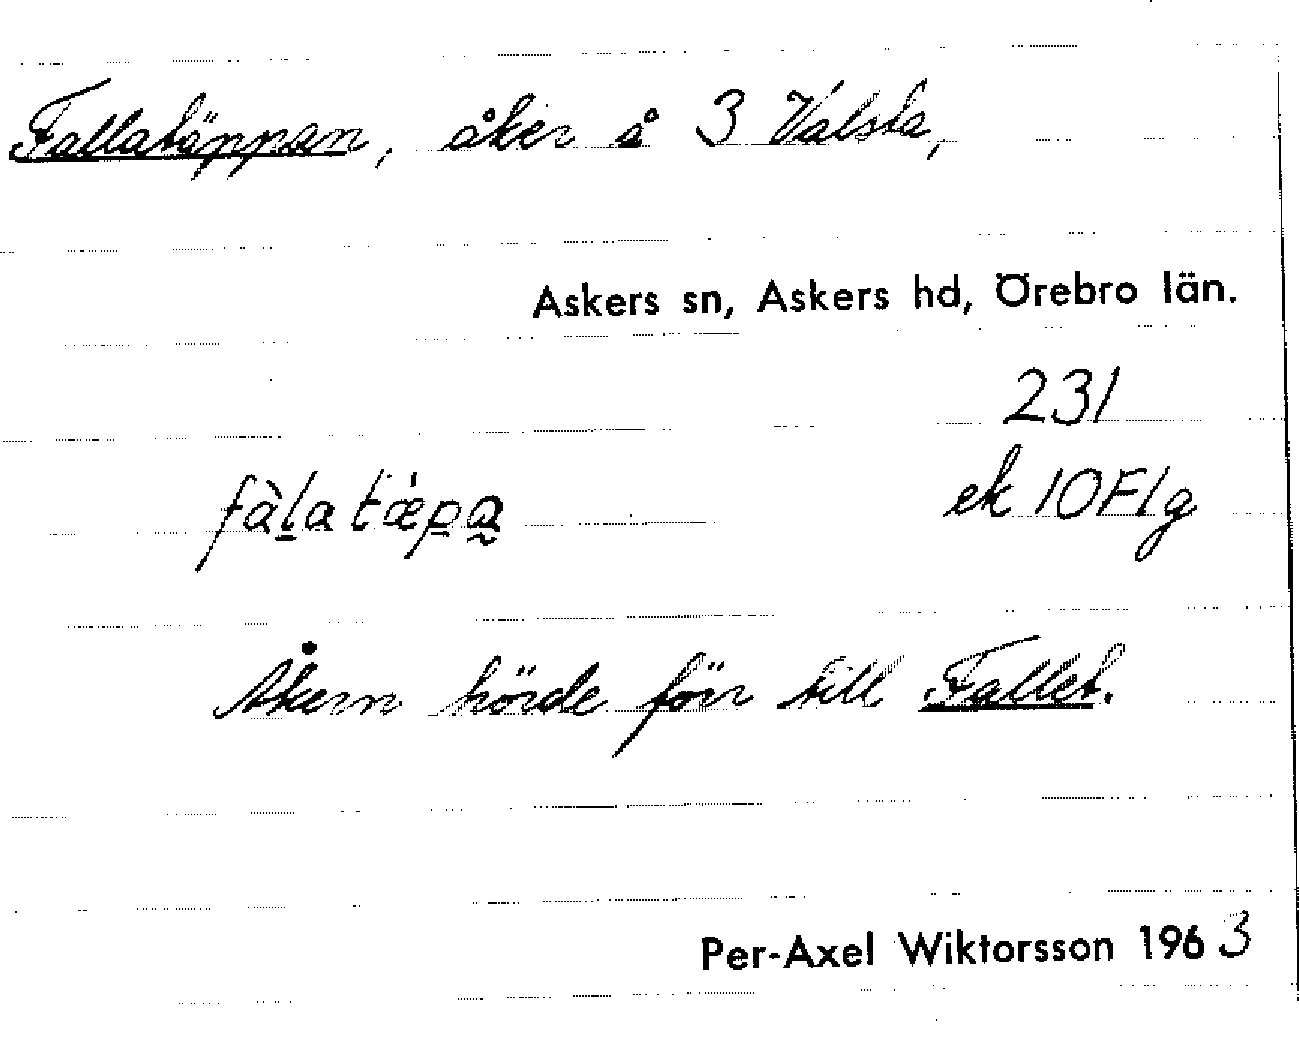 Fallatäppan, åker å 3 Valsta,
Askers sn, Askers hd, Örebro län.
231
fàla tæ̇pa ek 10F1g
Åkern hörde förr till Fallet.
Per-Axel Wiktorsson 1963